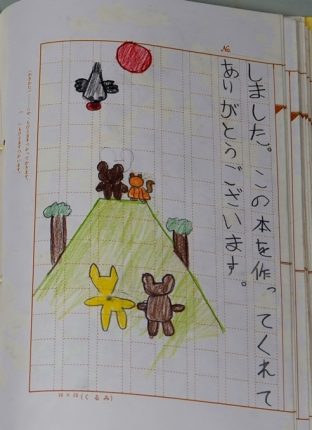 しました。この本を作ってくれて
ありがとうございます。
№
18×15(くるみ)